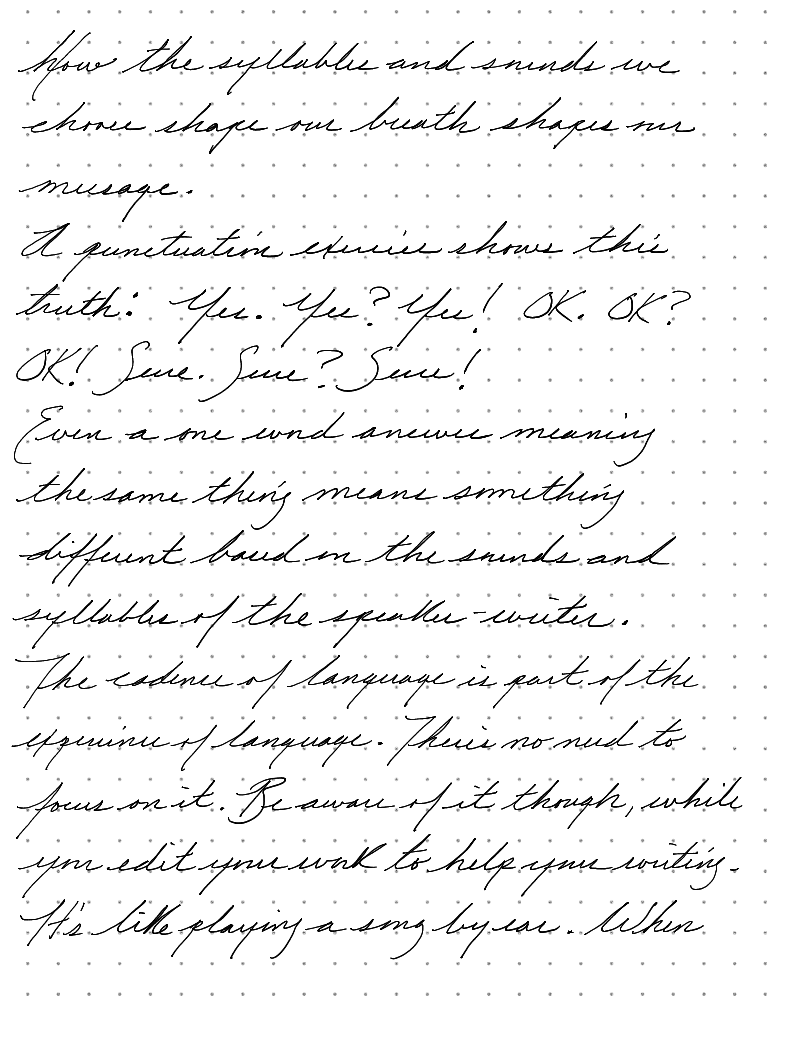 How the syllables and sounds we
choose shape our breath shapes our
message.
A punctuation exercise shows this
truth: Yes. Yes? Yes! OK. OK?
OK! Sure. Sure? Sure!
Even a one word answer meaning
the same thing means something
different based on the sounds and
syllables of the speaker-writer.
The cadence of language is part of the
experience of language. There is no need to
focus on it. Be aware of it though, while
you edit your work to help your writing.
It's like playing a song by ear. When